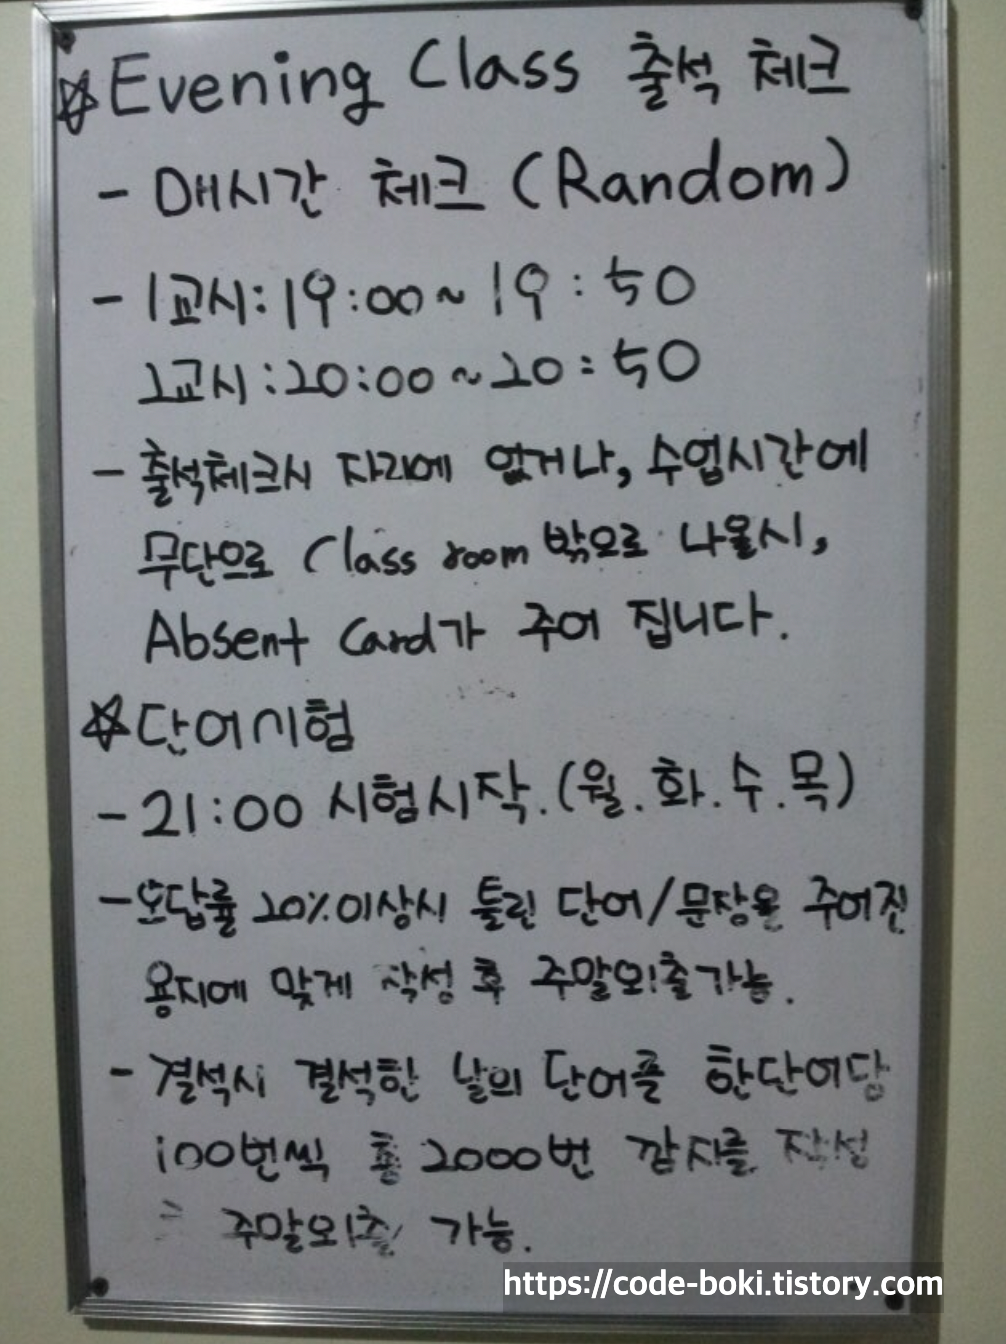 ☆Evening Class 출석 체크
- 매시간 체크 (Random)
- 1교시:19:00~19:50
2교시:20:00~20:50
- 출석체크시 자리에 없거나, 수업시간에
무단으로 Class room 밖으로 나올시,
Absent Card가 주어 집니다.
☆단어시험
- 21:00 시험시작.(월.화.수.목)
- 오답률 20%이상시 틀린 단어/문장을 주어진
용지에 맞게 작성 후 주말외출가능.
- 결석시 결석한 날의 단어를 한단어당
100번씩 총 2000번 깜지를 작성
주말외출 가능.
https://code-boki.tistory.com